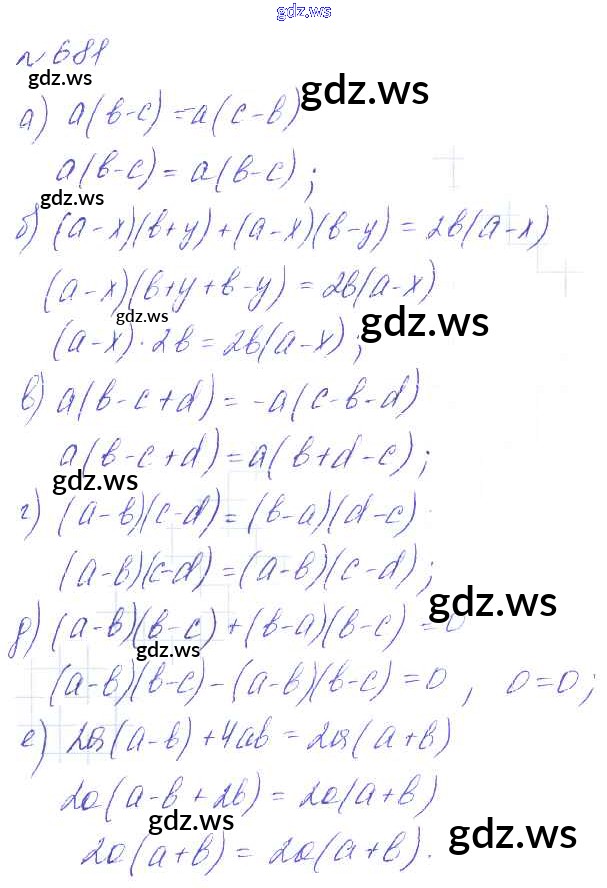 gdz.ws
№ 681
gdz.ws
gdz.ws
а) a(b-c) = a(c-b)
a(b-c) = a(b-c);
gdz.ws
б) (a-x)(b+y)+(a-x)(b-y) = 2b(a-x)
(a-x)(b+y+b-y) = 2b(a-x)
gdz.ws
gdz.ws
(a-x)·2b = 2b(a-x);
в) a(b-c+d) = -a(c-b-d)
a(b-c+d) = a(b+d-c);
gdz.ws
г) (a-b)(c-d) = (b-a)(d-c)
(a-b)(c-d) = (a-b)(c-d);
gdz.ws
д) (a-b)(b-c)+(b-a)(b-c) = 0
gdz.ws
(a-b)(b-c)-(a-b)(b-c) = 0, 0=0;
е) 2a(a-b)+4ab = 2a(a+b)
2a(a-b+2b) = 2a(a+b)
gdz.ws
gdz.ws
2a(a+b) = 2a(a+b).